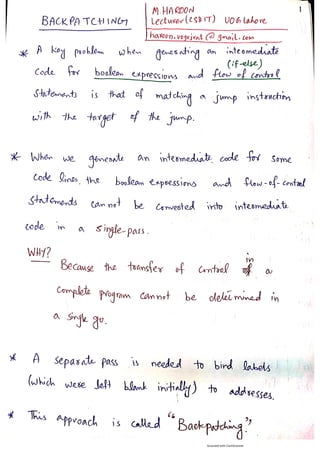 1
BACKPATCHING
M. HAROON
Lecturer (CS&IT) UOG lahore
haroon.vogvirnt@gmail.com
* A Key problem when generating an intermediate
(if-else)
Code for boolean expressions and flow of control
Statements is that of matching a jump instruction
with the target of the jump.
* When we generate an intermediate code for some
Code lines, the boolean expressions and flow-of-control
Statements can not be converted into intermediate
code in a single-pass.
WHY?
Because the transfer of control in a
Complete program cannot be determined in
a single go.
* A separate pass is needed to bind labels
(which were left blank initially) to addresses.
* This approach is called "Backpatching."
Scanned with CamScanner